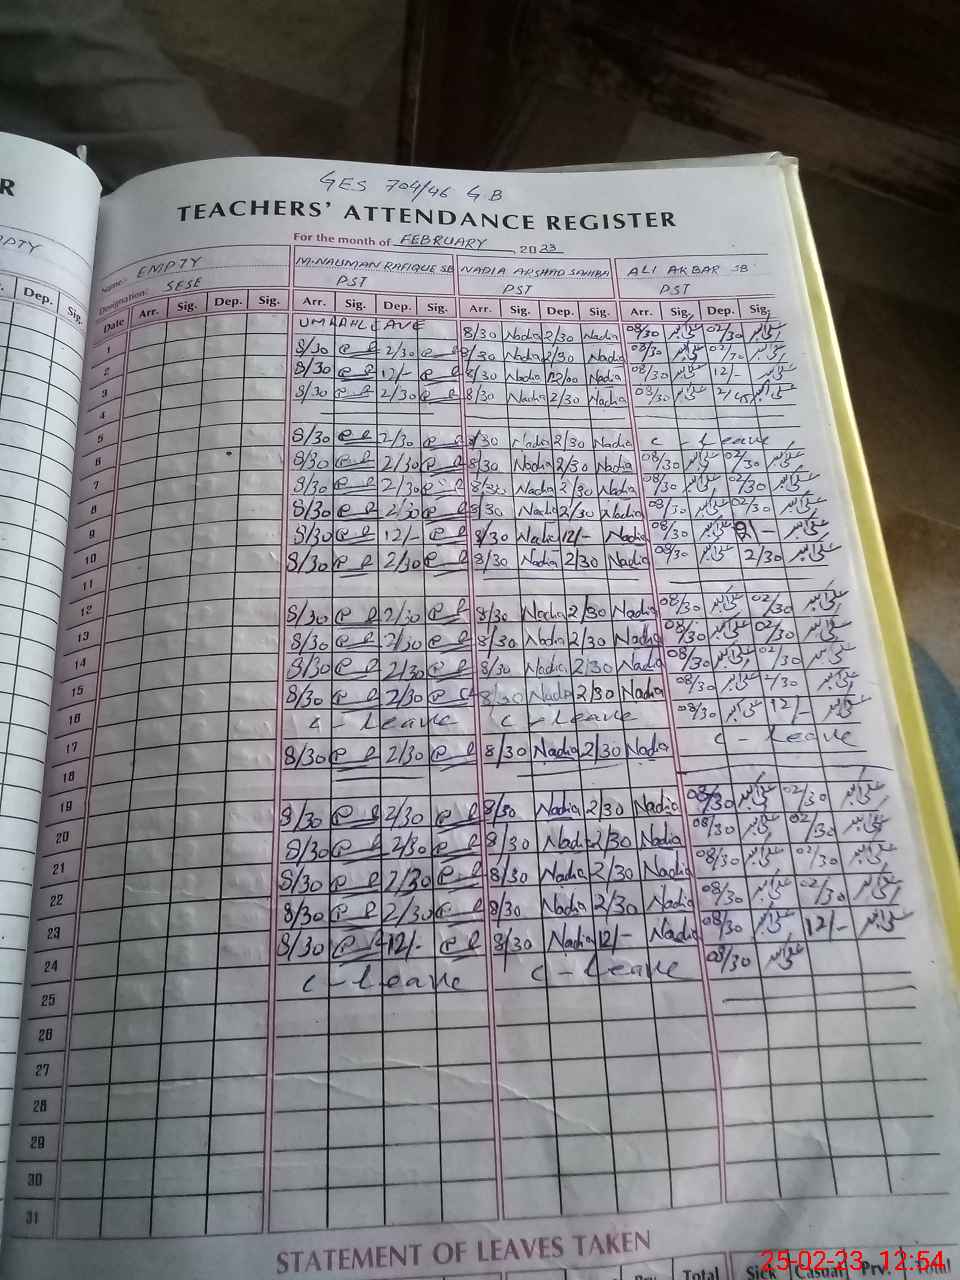 R
GES 704/46 GB
TEACHERS' ATTENDANCE REGISTER
For the month of FEBRUARY 2023
Name: EMPTY M.NAUMAN RAFIQUE SB NADIA ARSHAD SAHIBA ALI AKBAR SB
Designation: SESE PST PST PST
Dep. Sig. Date Arr. Sig. Dep. Sig. Arr. Sig. Dep. Sig. Arr. Sig. Dep. Sig. Arr. Sig. Dep. Sig.
1 UMRAH LEAVE 8/30 Nadia 2/30 Nadia 08/30 علی اکبر 02/30 علی اکبر
2 8/30 2/30 8/30 Nadia 2/30 Nadia 08/30 علی اکبر 02/30 علی اکبر
3 8/30 12/- 8/30 Nadia 12/00 Nadia 08/30 علی اکبر 12/- علی اکبر
4 8/30 2/30 8/30 Nadia 2/30 Nadia 08/30 علی اکبر 2/45 علی اکبر
5
6 8/30 2/30 8/30 Nadia 2/30 Nadia C - Leave
7 8/30 2/30 8/30 Nadia 2/30 Nadia 08/30 علی اکبر 02/30 علی اکبر
8 8/30 2/30 8/30 Nadia 2/30 Nadia 08/30 علی اکبر 02/30 علی اکبر
9 8/30 2/30 8/30 Nadia 2/30 Nadia 08/30 علی اکبر 02/30 علی اکبر
10 8/30 12/- 8/30 Nadia 12/- Nadia 08/30 علی اکبر علی اکبر
11 8/30 2/30 8/30 Nadia 2/30 Nadia 08/30 علی اکبر 2/30 علی اکبر
12
13 8/30 2/30 8/30 Nadia 2/30 Nadia 08/30 علی اکبر 02/30 علی اکبر
14 8/30 2/30 8/30 Nadia 2/30 Nadia 08/30 علی اکبر 02/30 علی اکبر
15 8/30 2/30 8/30 Nadia 2/30 Nadia 08/30 علی اکبر 02/30 علی اکبر
16 8/30 2/30 8/30 Nadia 2/30 Nadia 08/30 علی اکبر 2/30 علی اکبر
17 C - Leave C - Leave 08/30 علی اکبر 12/- علی اکبر
18 8/30 2/30 8/30 Nadia 2/30 Nadia C - Leave
19
20 8/30 2/30 8/30 Nadia 2/30 Nadia 08/30 علی اکبر 02/30 علی اکبر
21 8/30 2/30 8/30 Nadia 2/30 Nadia 08/30 علی اکبر 02/30 علی اکبر
22 8/30 2/30 8/30 Nadia 2/30 Nadia 08/30 علی اکبر 02/30 علی اکبر
23 8/30 2/30 8/30 Nadia 2/30 Nadia 08/30 علی اکبر 02/30 علی اکبر
24 8/30 12/- 8/30 Nadia 12/- Nadia 08/30 علی اکبر 12/- علی اکبر
25 C - Leave C - Leave 08/30 علی اکبر
26
27
28
29
30
31
STATEMENT OF LEAVES TAKEN
Total Sick Casual Prv. Total
25-02-23 12:54